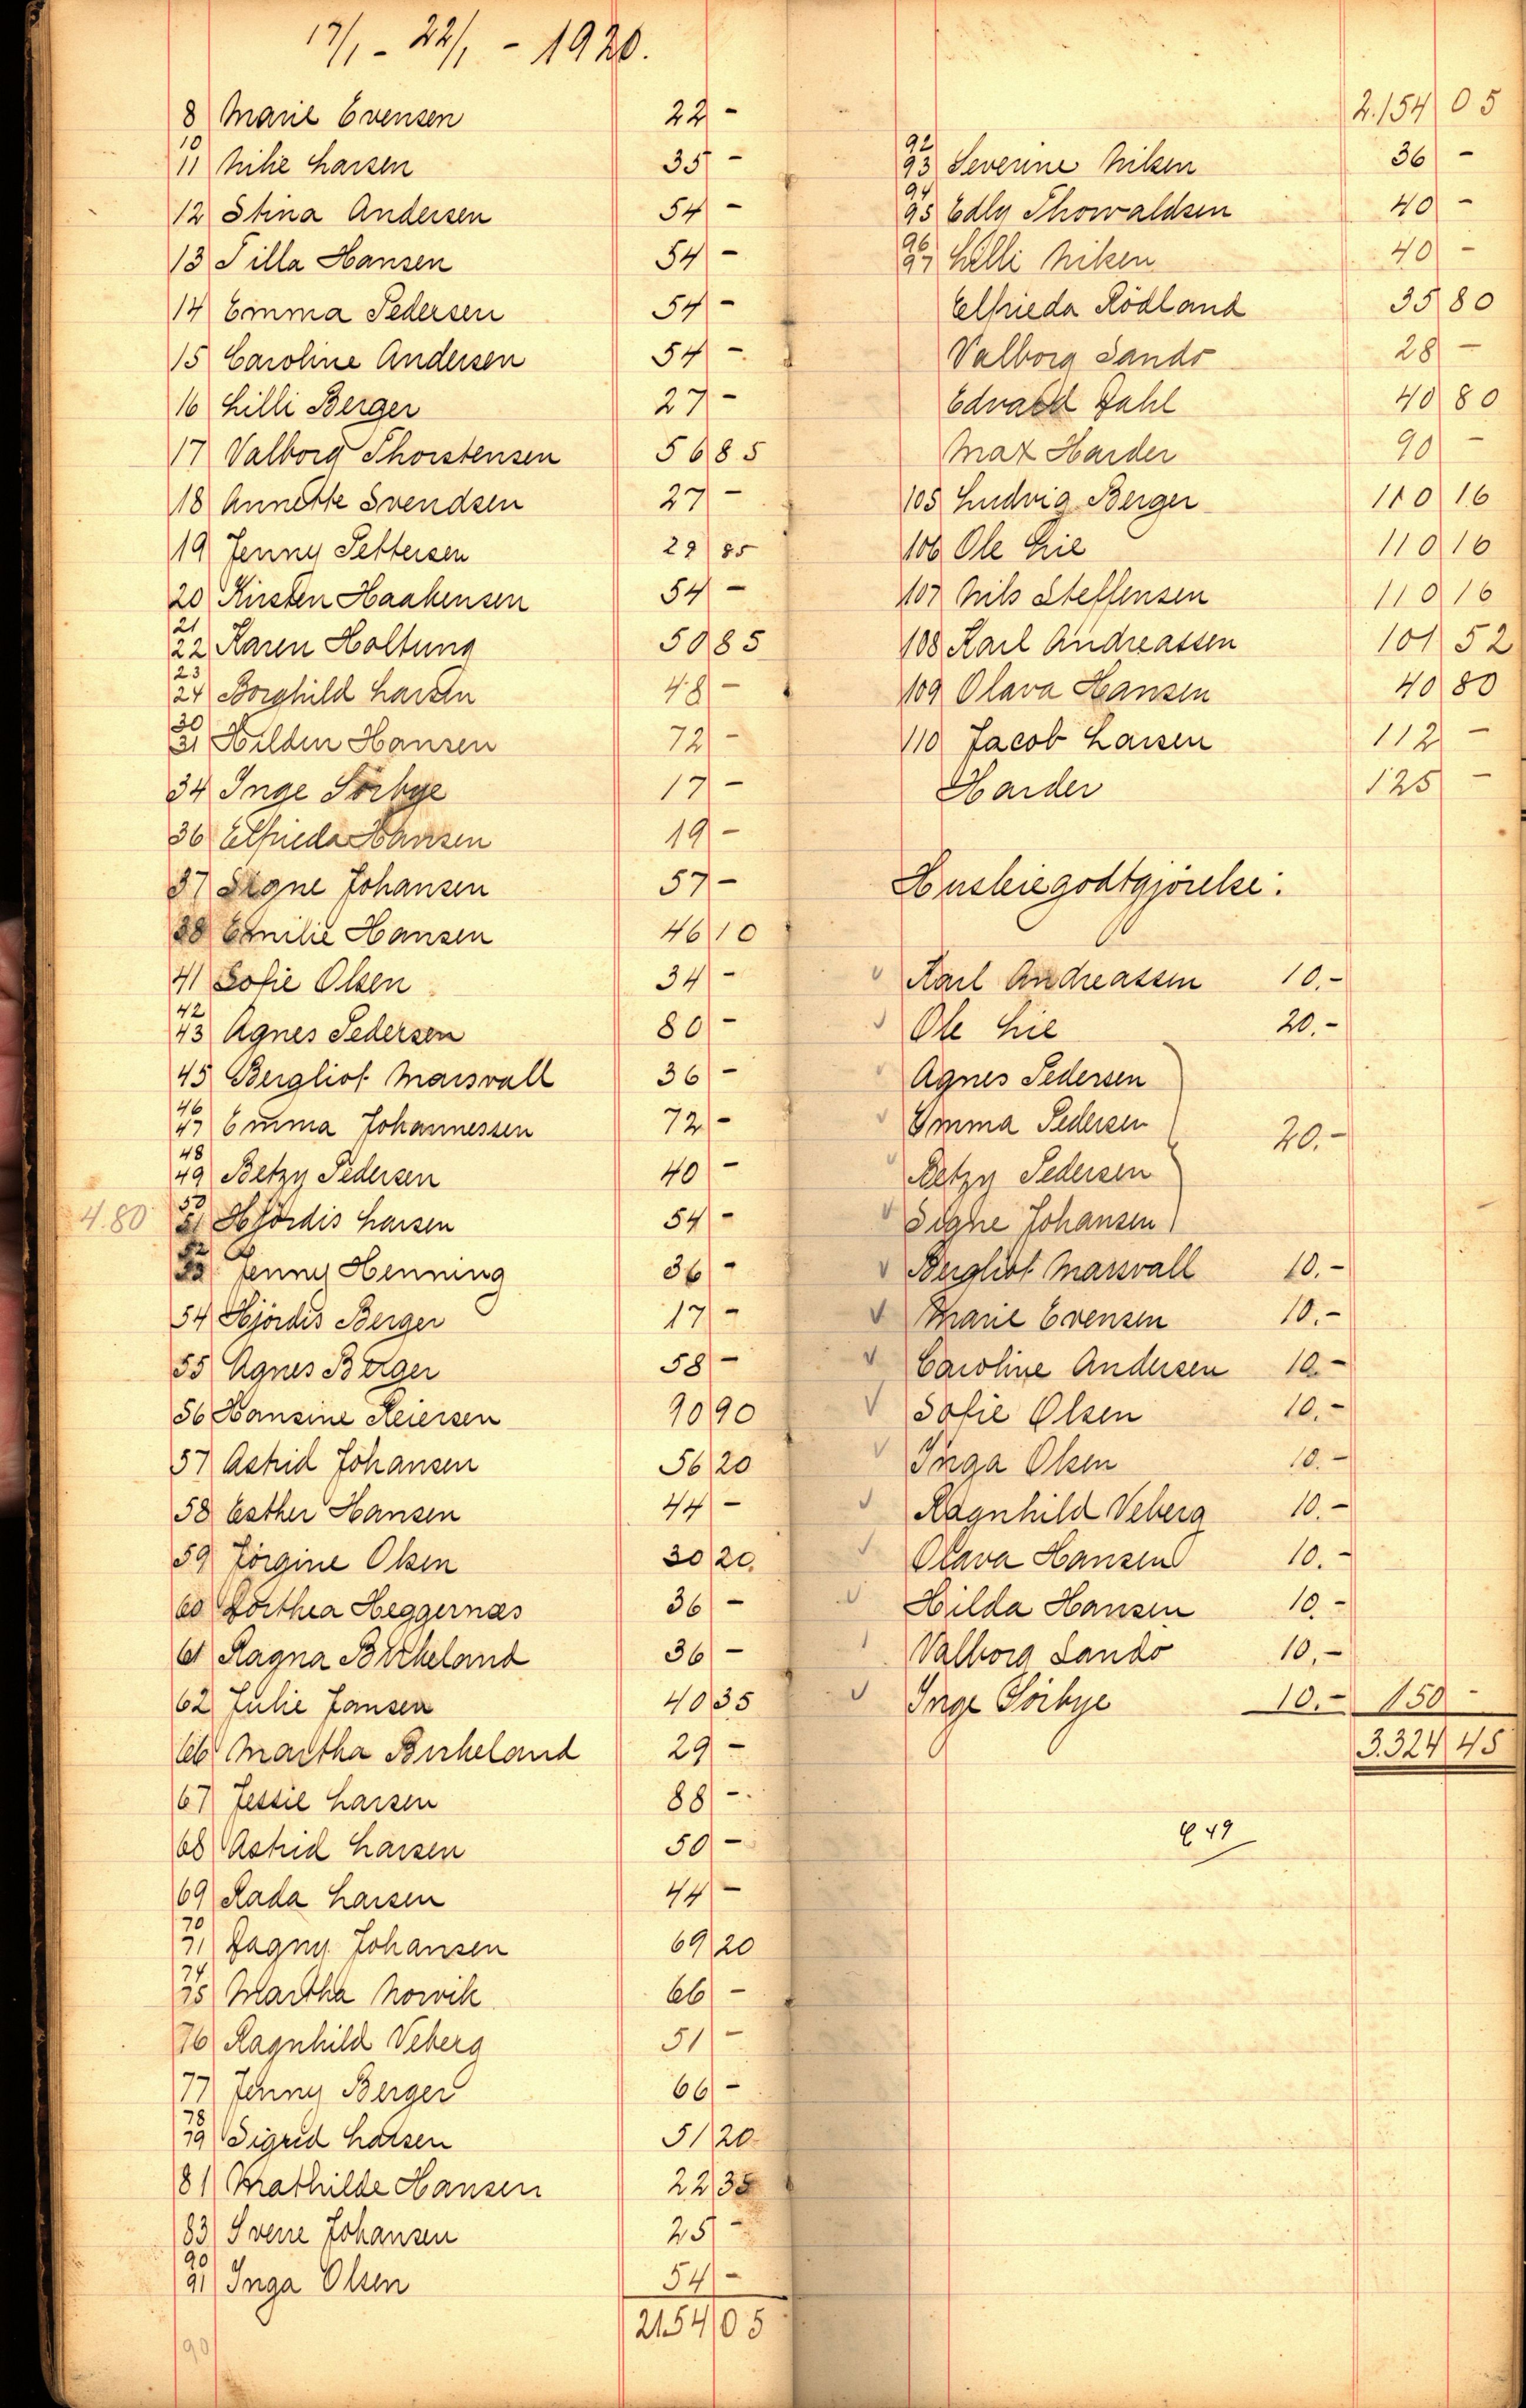 17/1 - 22/1 - 1920.
8 Marie Evensen 22 -
10
11 Mike Larsen 35 -
12 Stina Andersen 54 -
13 Tilla Hansen 54 -
14 Emma Pedersen 54 -
15 Caroline Andersen 54 -
16 Lilli Berger 27 -
17 Valborg Thorstensen 56 85
18 Annette Svendsen 27 -
19 Jenny Pettersen 29 85
20 Kirsten Haakensen 54 -
21
22 Karen Holtung 50 85
23
24 Borghild Larsen 48 -
30
31 Hilden Hansen 72 -
34 Inge Sörbye 17 -
36 Elfrieda Hansen 19 -
37 Signe Johansen 57 -
38 Emilie Hansen 46 10
41 Sofie Olsen 34 -
42
43 Agnes Pedersen 80 -
45 Bergliot Marsvall 36 -
46
47 Emma Johannessen 72 -
48
49 Betzy Pedersen 40 -
50
4.80 51 Hjördis Larsen 54 -
52
53 Jenny Henning 36 -
54 Hjördis Berger 17 -
55 Agnes Berger 58 -
56 Hansine Reiersen 90 90
57 Astrid Johansen 56 20
58 Esther Hansen 44 -
59 Jörgine Olsen 30 20
60 Dorthea Heggernæs 36 -
61 Ragna Birkeland 36 -
62 Julie Jansen 40 35
66 Martha Birkeland 29 -
67 Jessie Larsen 88 -
68 Astrid Larsen 50 -
69 Rada Larsen 44 -
70
71 Dagny Johansen 69 20
74
75 Martha Norvik 66 -
76 Ragnhild Veberg 51 -
77 Jenny Berger 66 -
78
79 Sigrid Larsen 51 20
81 Mathilde Hansen 22 35
83 Sverre Johansen 25 -
90
91 Inga Olsen 54 -
2154 05
90
2.154 05
92
93 Severine Nilsen 36 -
94
95 Edly Thowaldsen 40 -
96
97 Lilli Nilsen 40 -
Elfrieda Rödland 35 80
Valborg Sando 28 -
Edvard Dahl 40 80
Max Harder 90 -
105 Ludvig Berger 110 16
106 Ole Lie 110 16
107 Nils Steffensen 110 16
108 Karl Andreassen 101 52
109 Olava Hansen 40 80
110 Jacob Larsen 112 -
Harder 125 -
Husleiegodtgjörelse:
Karl Andreassen 10.-
Ole Lie 20.-
Agnes Pedersen
Emma Pedersen
20.-
Betzy Pedersen
Signe Johansen
Bergliot Marsvall 10.-
Marie Evensen 10.-
Caroline Andersen 10.-
Sofie Olsen 10.-
Inga Olsen 10.-
Ragnhild Veberg 10.-
Olava Hansen 10.-
Hilda Hansen 10.-
Valborg Sando 10.-
Inge Sörbye 10.- 150 -
3.324 45